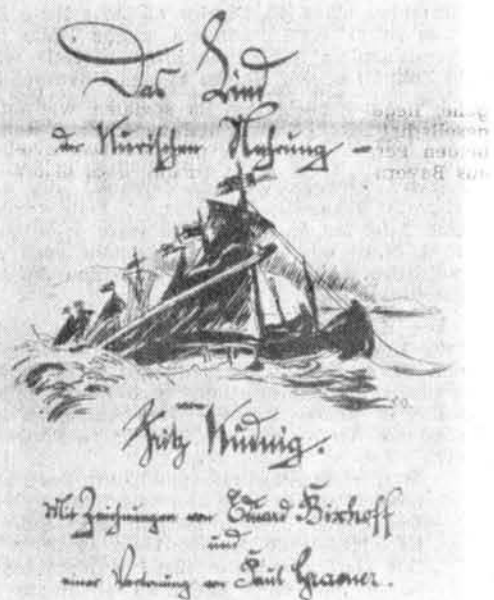 Das Lied
der Kurischen Nehrung –
aus Bayern
von
Fritz Kudnig.
Mit Zeichnungen von Eduard Bischoff
und
einer Vertonung von Paul Graener.